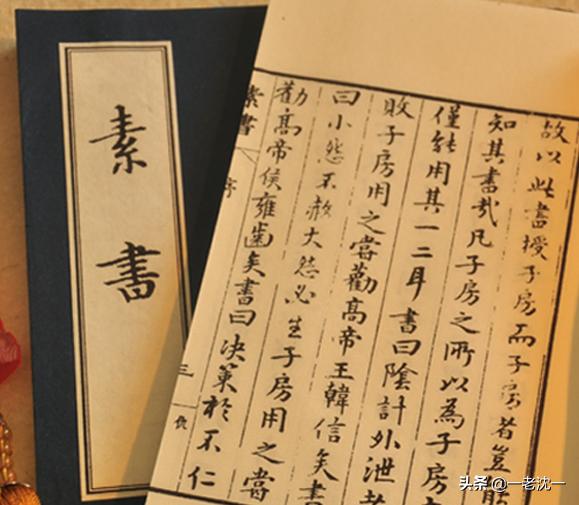 素書
故以此書授子房而子房者豈能
知其書哉凡子房之所以為子房
僅能用其一二耳書曰陰計外泄者
敗子房用之嘗勸高帝王韓信矣書
曰小怨不赦大怨必生子房用之嘗
勸高帝侯雍齒矣書曰決策於不仁
素書 序 三
头条 @一老沈一